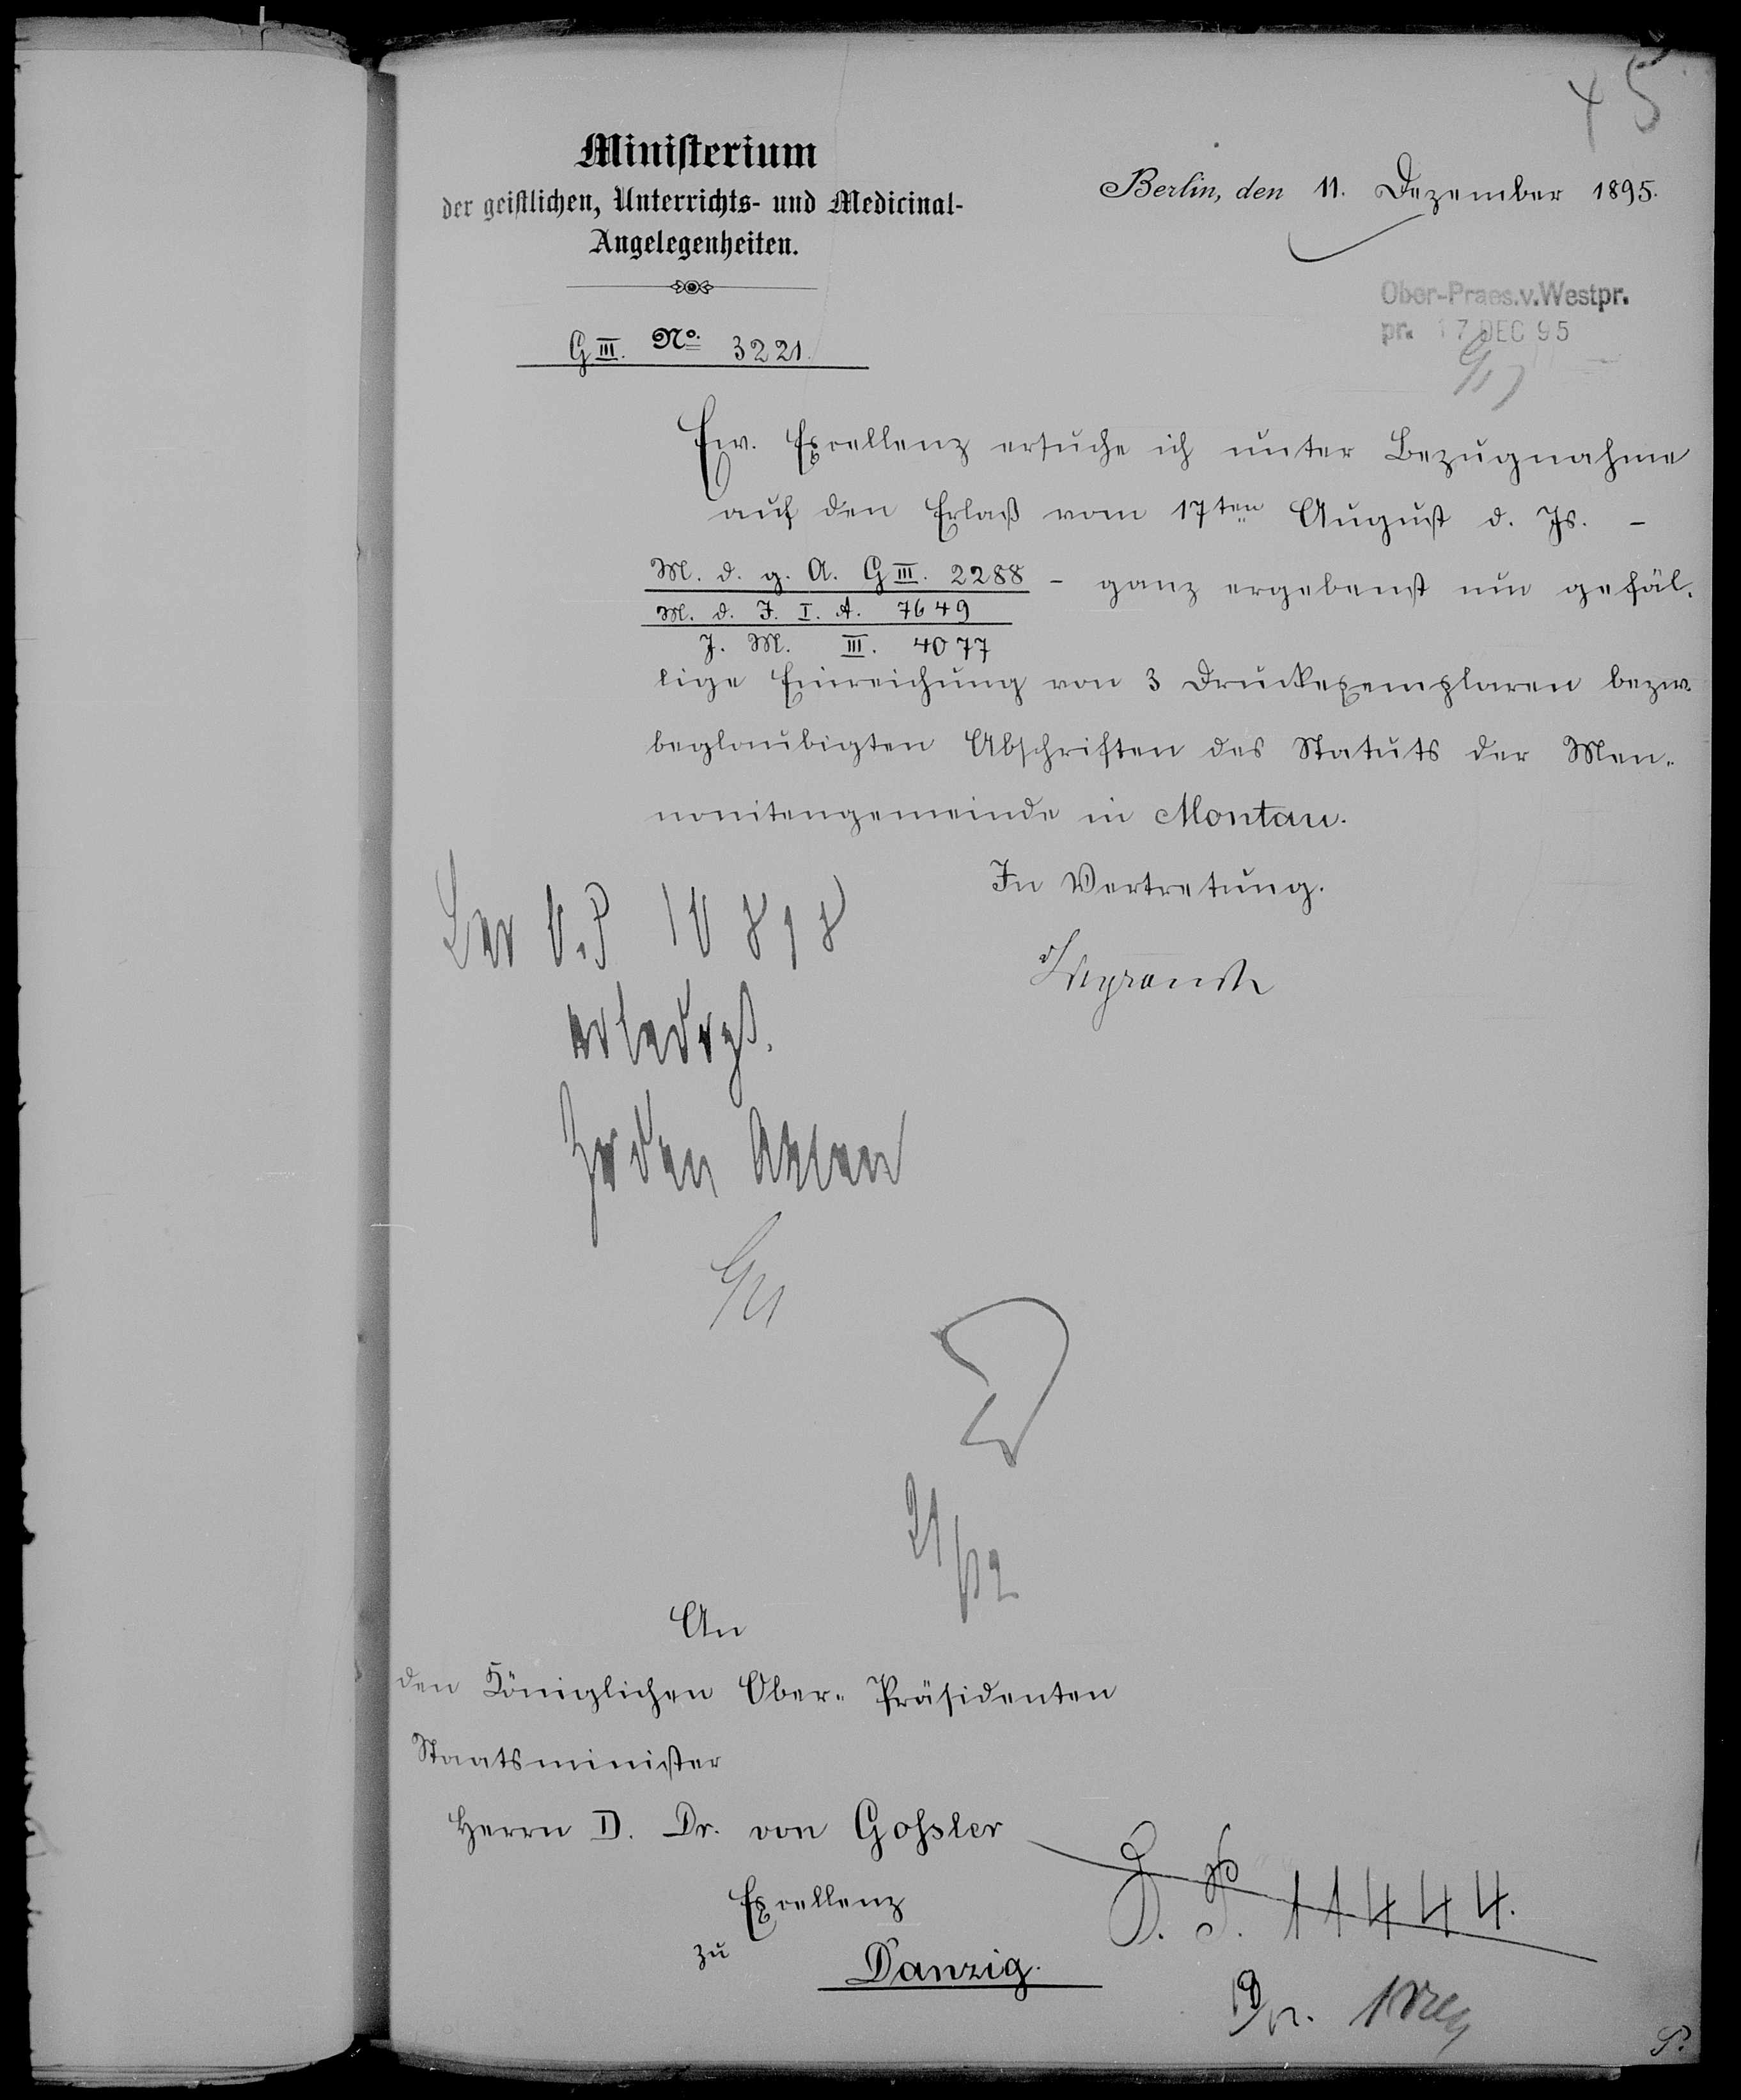 45
Ministerium
der geistlichen, Unterrichts- und Medicinal-
Angelegenheiten.
Berlin, den 11. Dezember 1895.
Ober-Praes.v.Westpr.
pr. 17 DEC 95
G III. No. 3221.
Ew. Excellenz ersuche ich unter Bezugnahme
auf den Erlaß vom 17ten August d. Js. -
M. d. g. A. G III. 2288 - ganz ergebenst um gefäl-
M. d. J. I. A. 7649
J. M. III. 4077
lige Einreichung von 3 Druckexemplaren bezw.
beglaubigten Abschriften des Statuts der Men-
nonitengemeinde in Montau.
In Vertretung.
Weyrauch
O.P 10818
erledigt.
Zu den Akten
21/12
An
den Königlichen Ober-Präsidenten
Staatsminister
Herrn D. Dr. von Goßler
Excellenz
zu
Danzig.
O. P. 11444.
19/12.